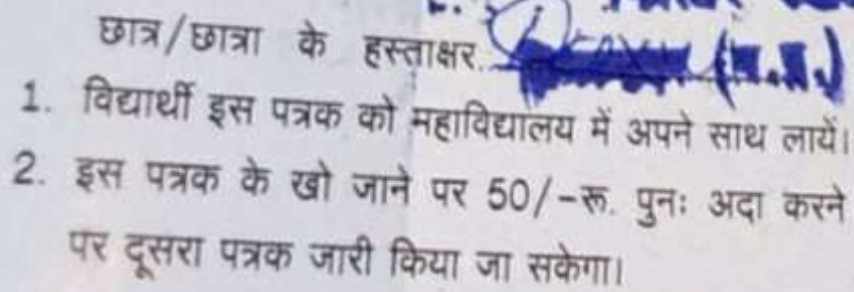 छात्र/छात्रा के हस्ताक्षर.
1. विद्यार्थी इस पत्रक को महाविद्यालय में अपने साथ लायें।
2. इस पत्रक के खो जाने पर 50/-रू. पुनः अदा करने
पर दूसरा पत्रक जारी किया जा सकेगा।